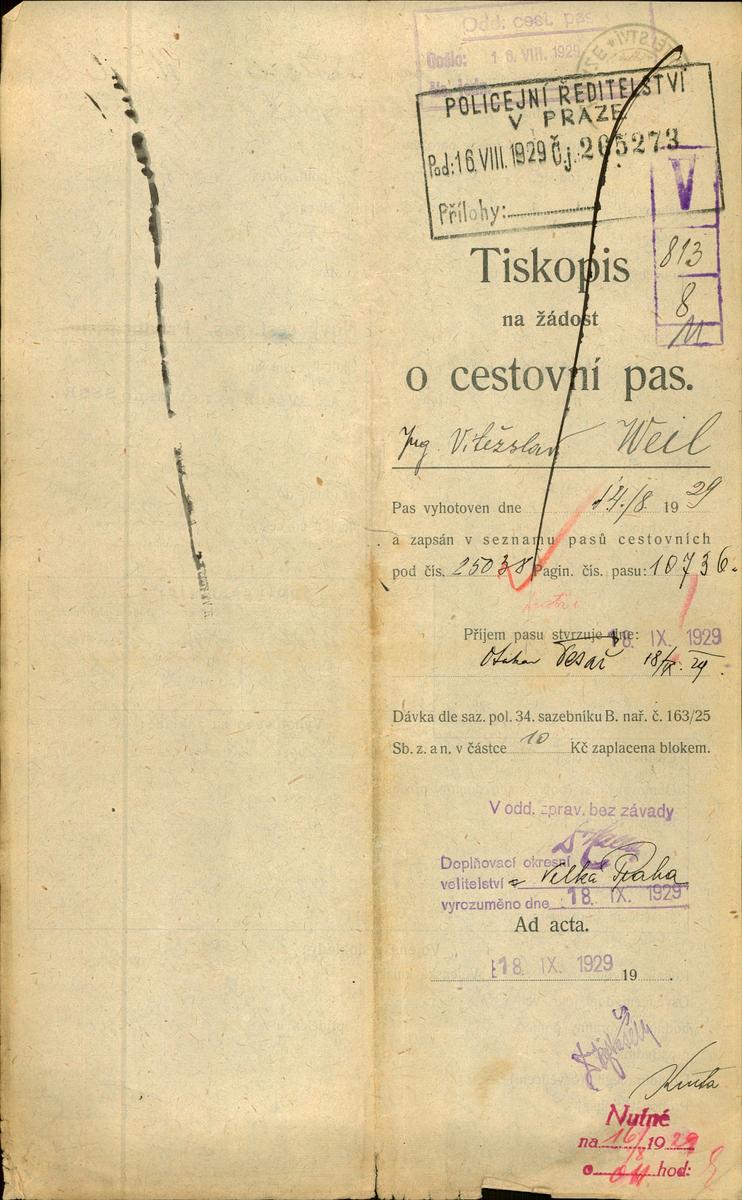 Odd. cest. pas
Došlo: 16. VIII. 1929
POLICEJNÍ ŘEDITELSTVÍ
V PRAZE
Pod: 16. VIII. 1929 Čj. 265273
Přílohy:
V
813
8
M
Tiskopis
na žádost
o cestovní pas.
Ing. Vítězslav Weil
Pas vyhotoven dne 14./8. 1929
a zapsán v seznamu pasů cestovních
pod čís. 25038 Pagin. čís. pasu: 10736.
Příjem pasu stvrzuje dne: 18. IX. 1929
Otakar Tesař 18/IX. 29.
Dávka dle saz. pol. 34. sazebníku B. nař. č. 163/25
Sb. z. a n. v částce 10 Kč zaplacena blokem.
V odd. zprav. bez závady
Doplňovací okresní
velitelství Velká Praha
vyrozuměno dne 18. IX. 1929
Ad acta.
18. IX. 1929 19 .
Nutné
na 16/8 1929
o hod: